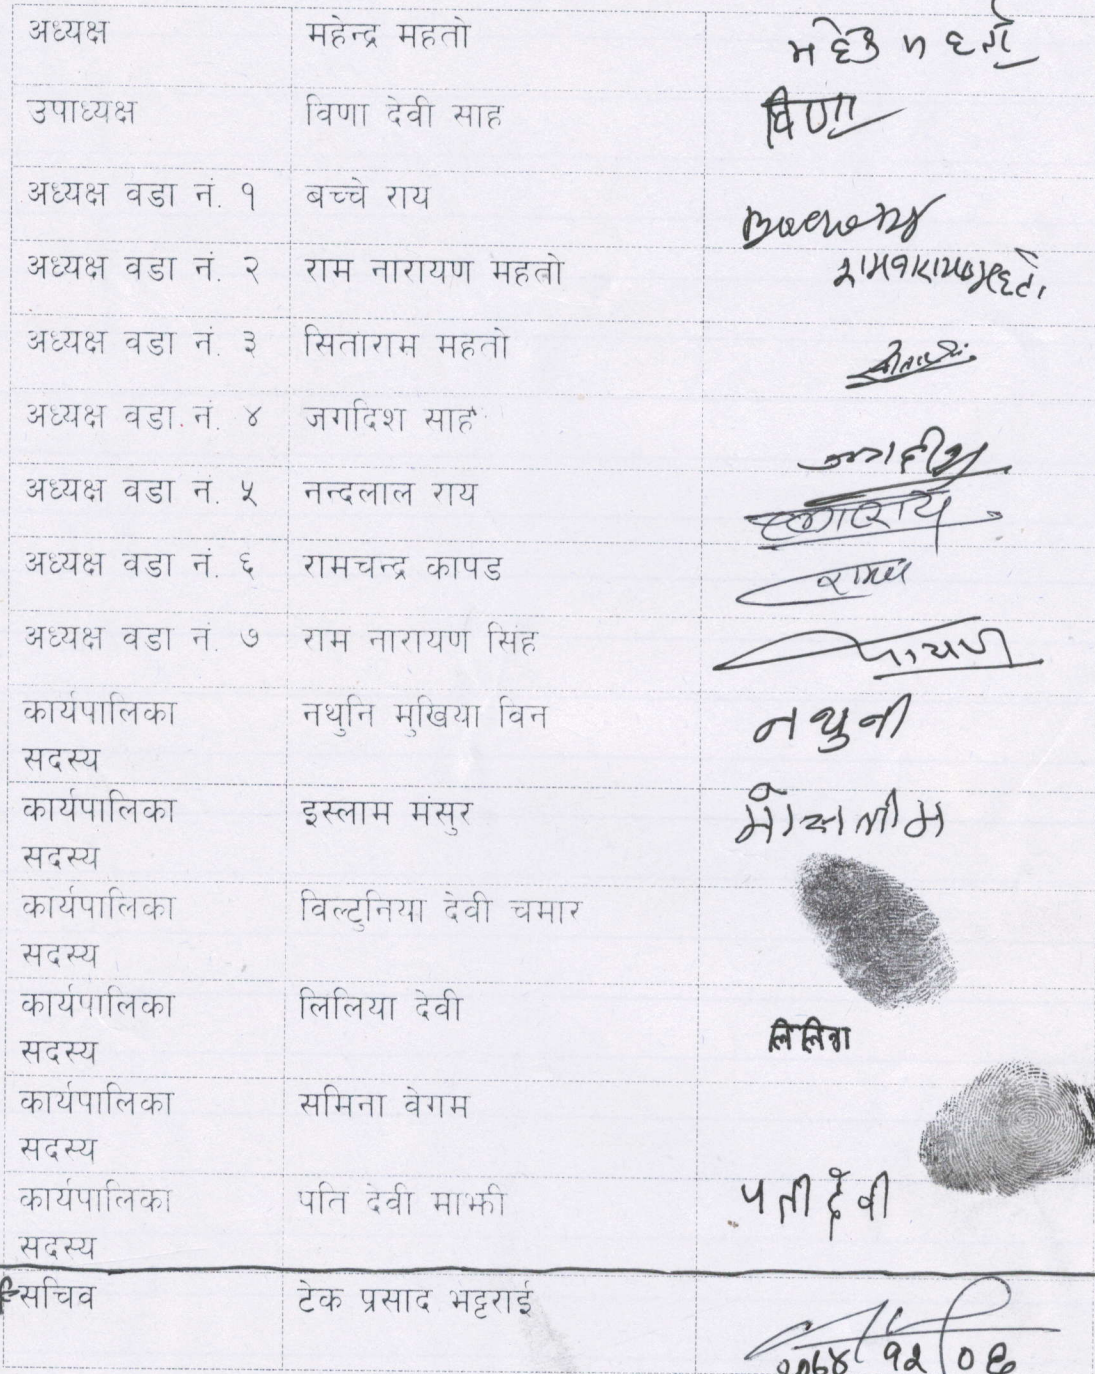 अध्यक्ष महेन्द्र महतो महेन्द्र महतो
उपाध्यक्ष विणा देवी साह विणा
अध्यक्ष वडा नं. १ बच्चे राय
अध्यक्ष वडा नं. २ राम नारायण महतो रामनारायण महतो
अध्यक्ष वडा नं. ३ सिताराम महतो
अध्यक्ष वडा नं. ४ जगदिश साह जगदीश
अध्यक्ष वडा नं. ५ नन्दलाल राय
अध्यक्ष वडा नं. ६ रामचन्द्र कापड
अध्यक्ष वडा नं. ७ राम नारायण सिंह
कार्यपालिका नथुनि मुखिया विन नथुनी
सदस्य
कार्यपालिका इस्लाम मंसुर
सदस्य
कार्यपालिका विल्टुनिया देवी चमार
सदस्य
कार्यपालिका लिलिया देवी लिलिया
सदस्य
कार्यपालिका समिना वेगम
सदस्य
कार्यपालिका पति देवी माझी पती देवी
सदस्य
सचिव टेक प्रसाद भट्टराई